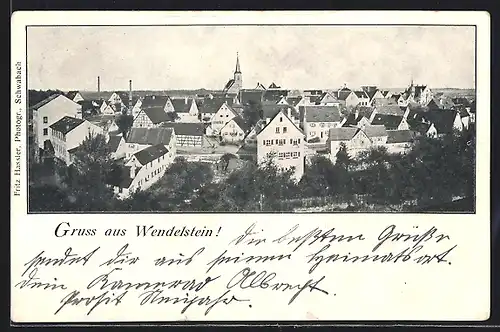 Fritz Hassler, Photogr., Schwabach
Gruss aus Wendelstein! die besten Grüße
sendet dir aus seinem Heimatsort.
dein Kamerad Albrecht.
Prosit Neujahr.